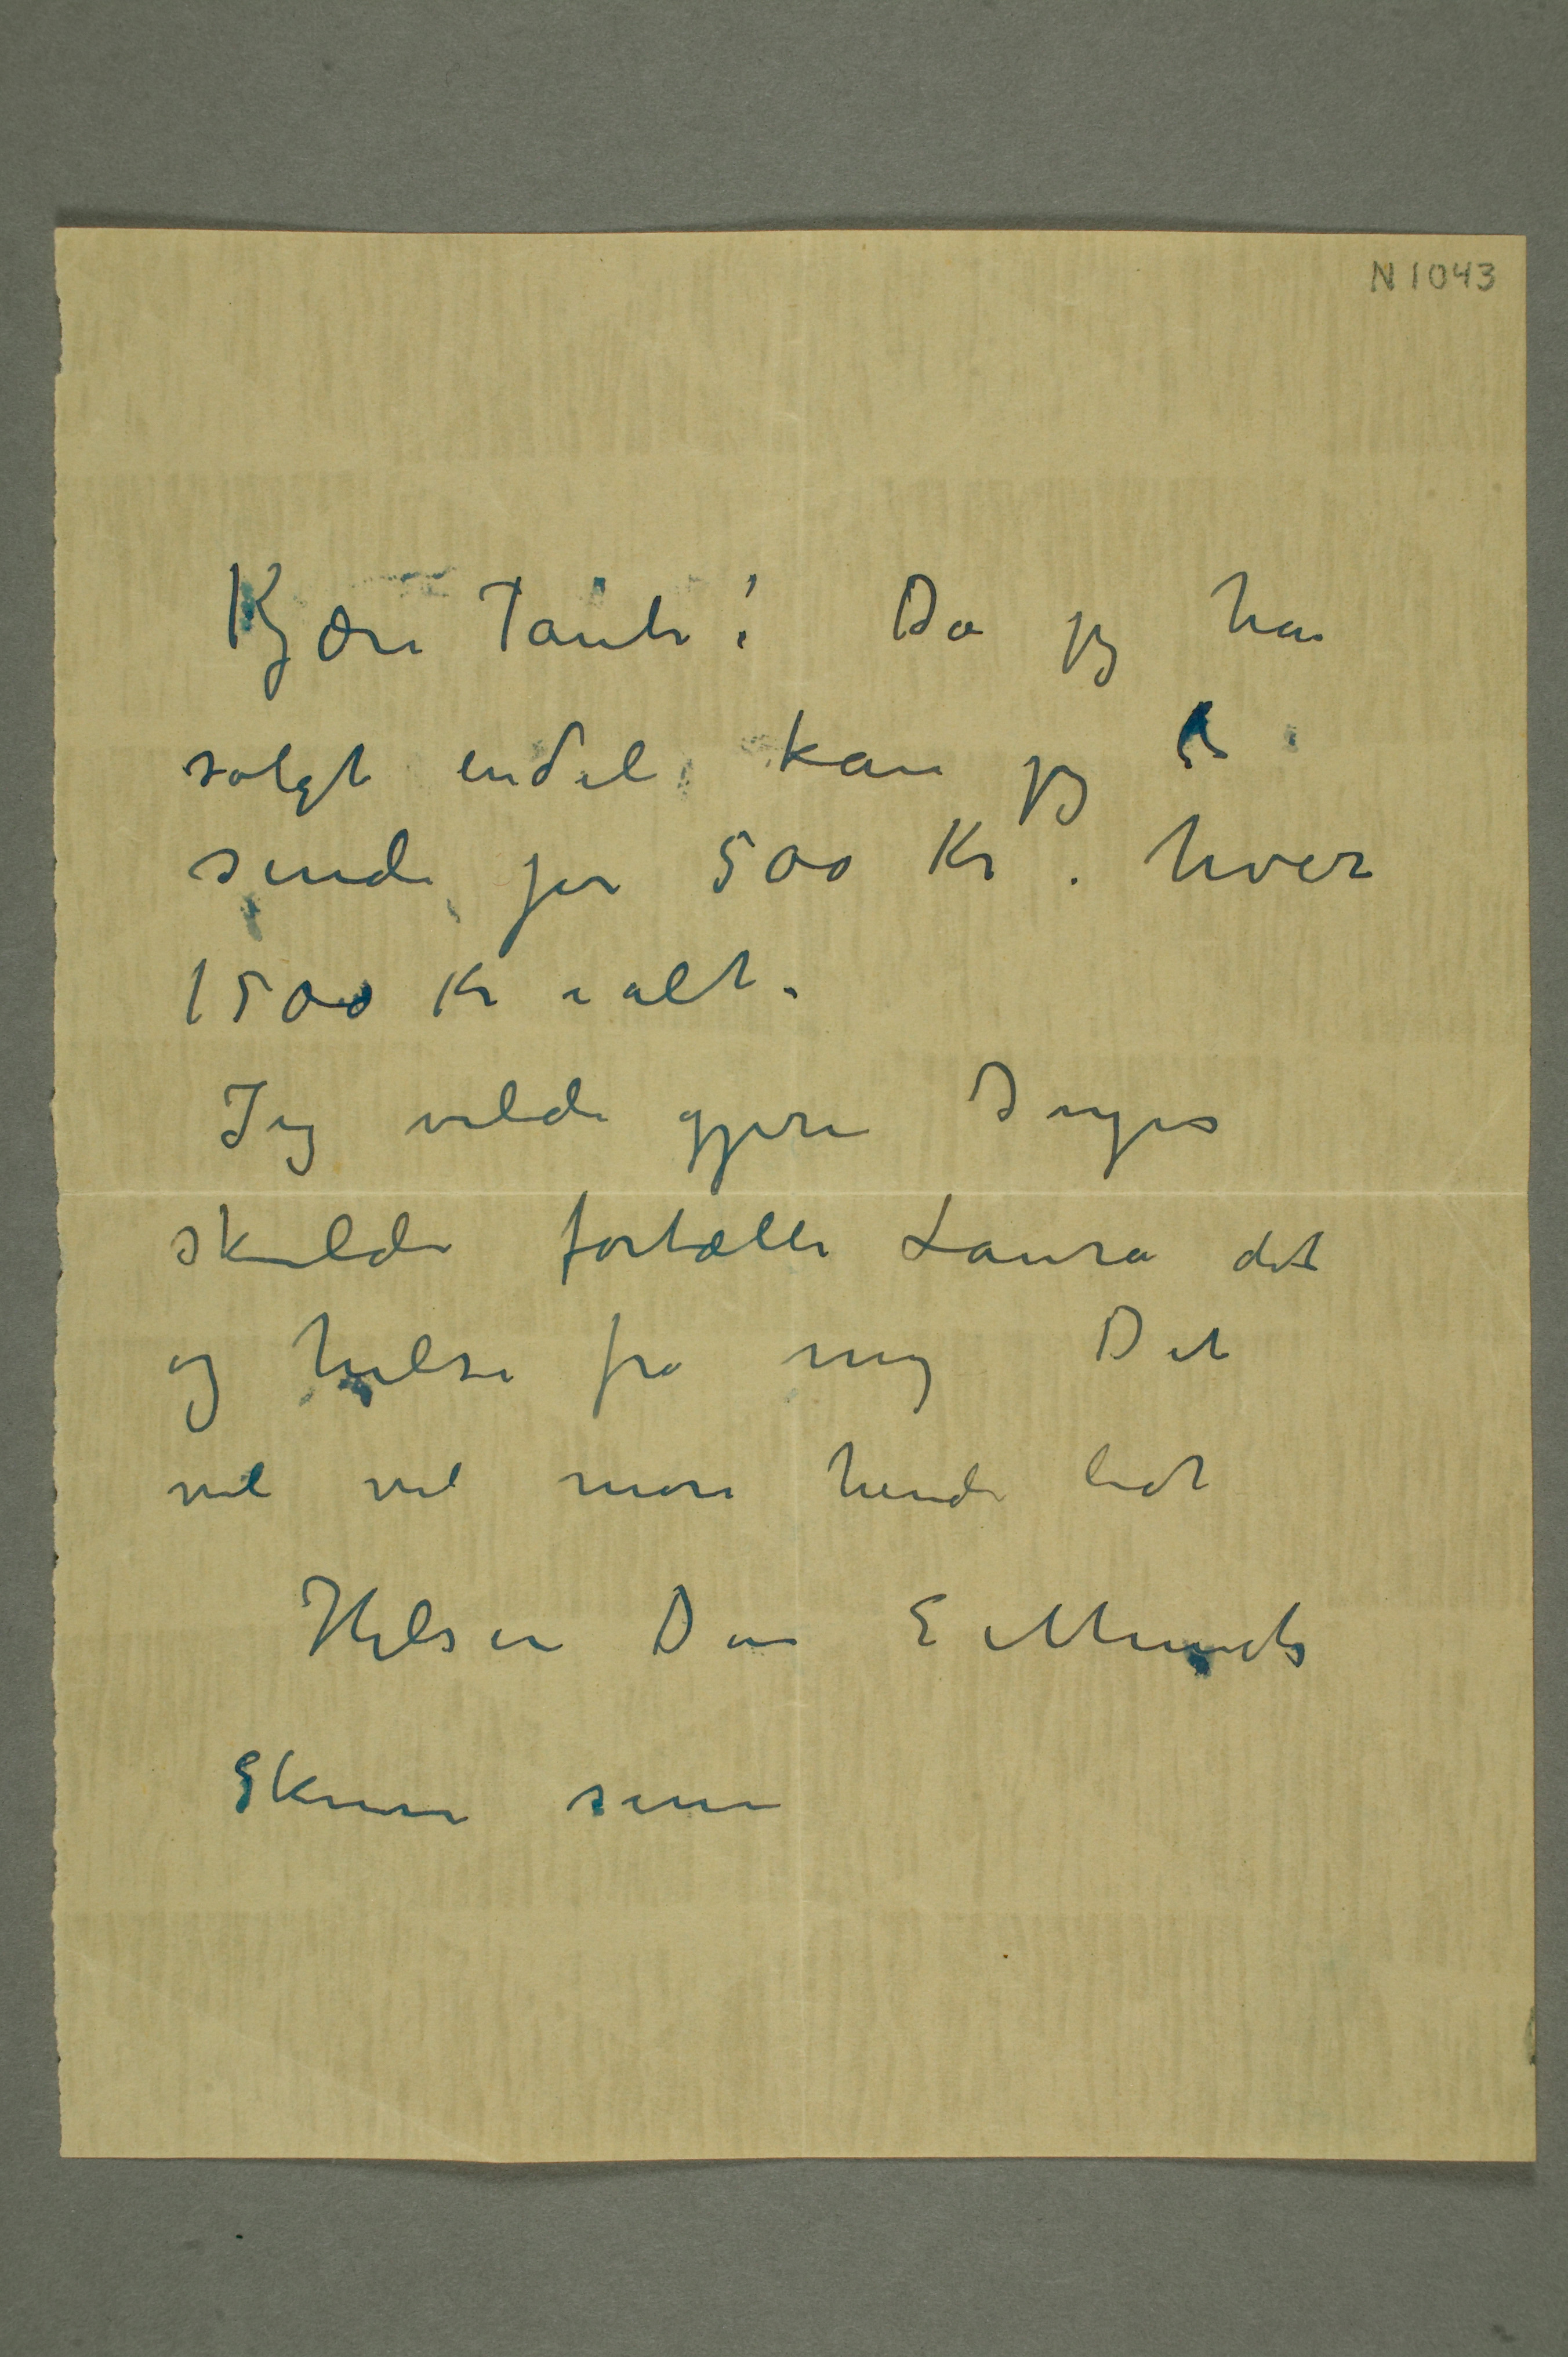 N 1043
Kjære Tante! Da jeg har
solgt endel kan jeg
sende jer 500 Kr. hver
1500 Kr ialt.
Jeg vilde gjerne Inger
skulde fortælle Laura det
og hilse fra mig Det
vil vel more hende lidt
Hilsen Din E Munch
Skriver snart